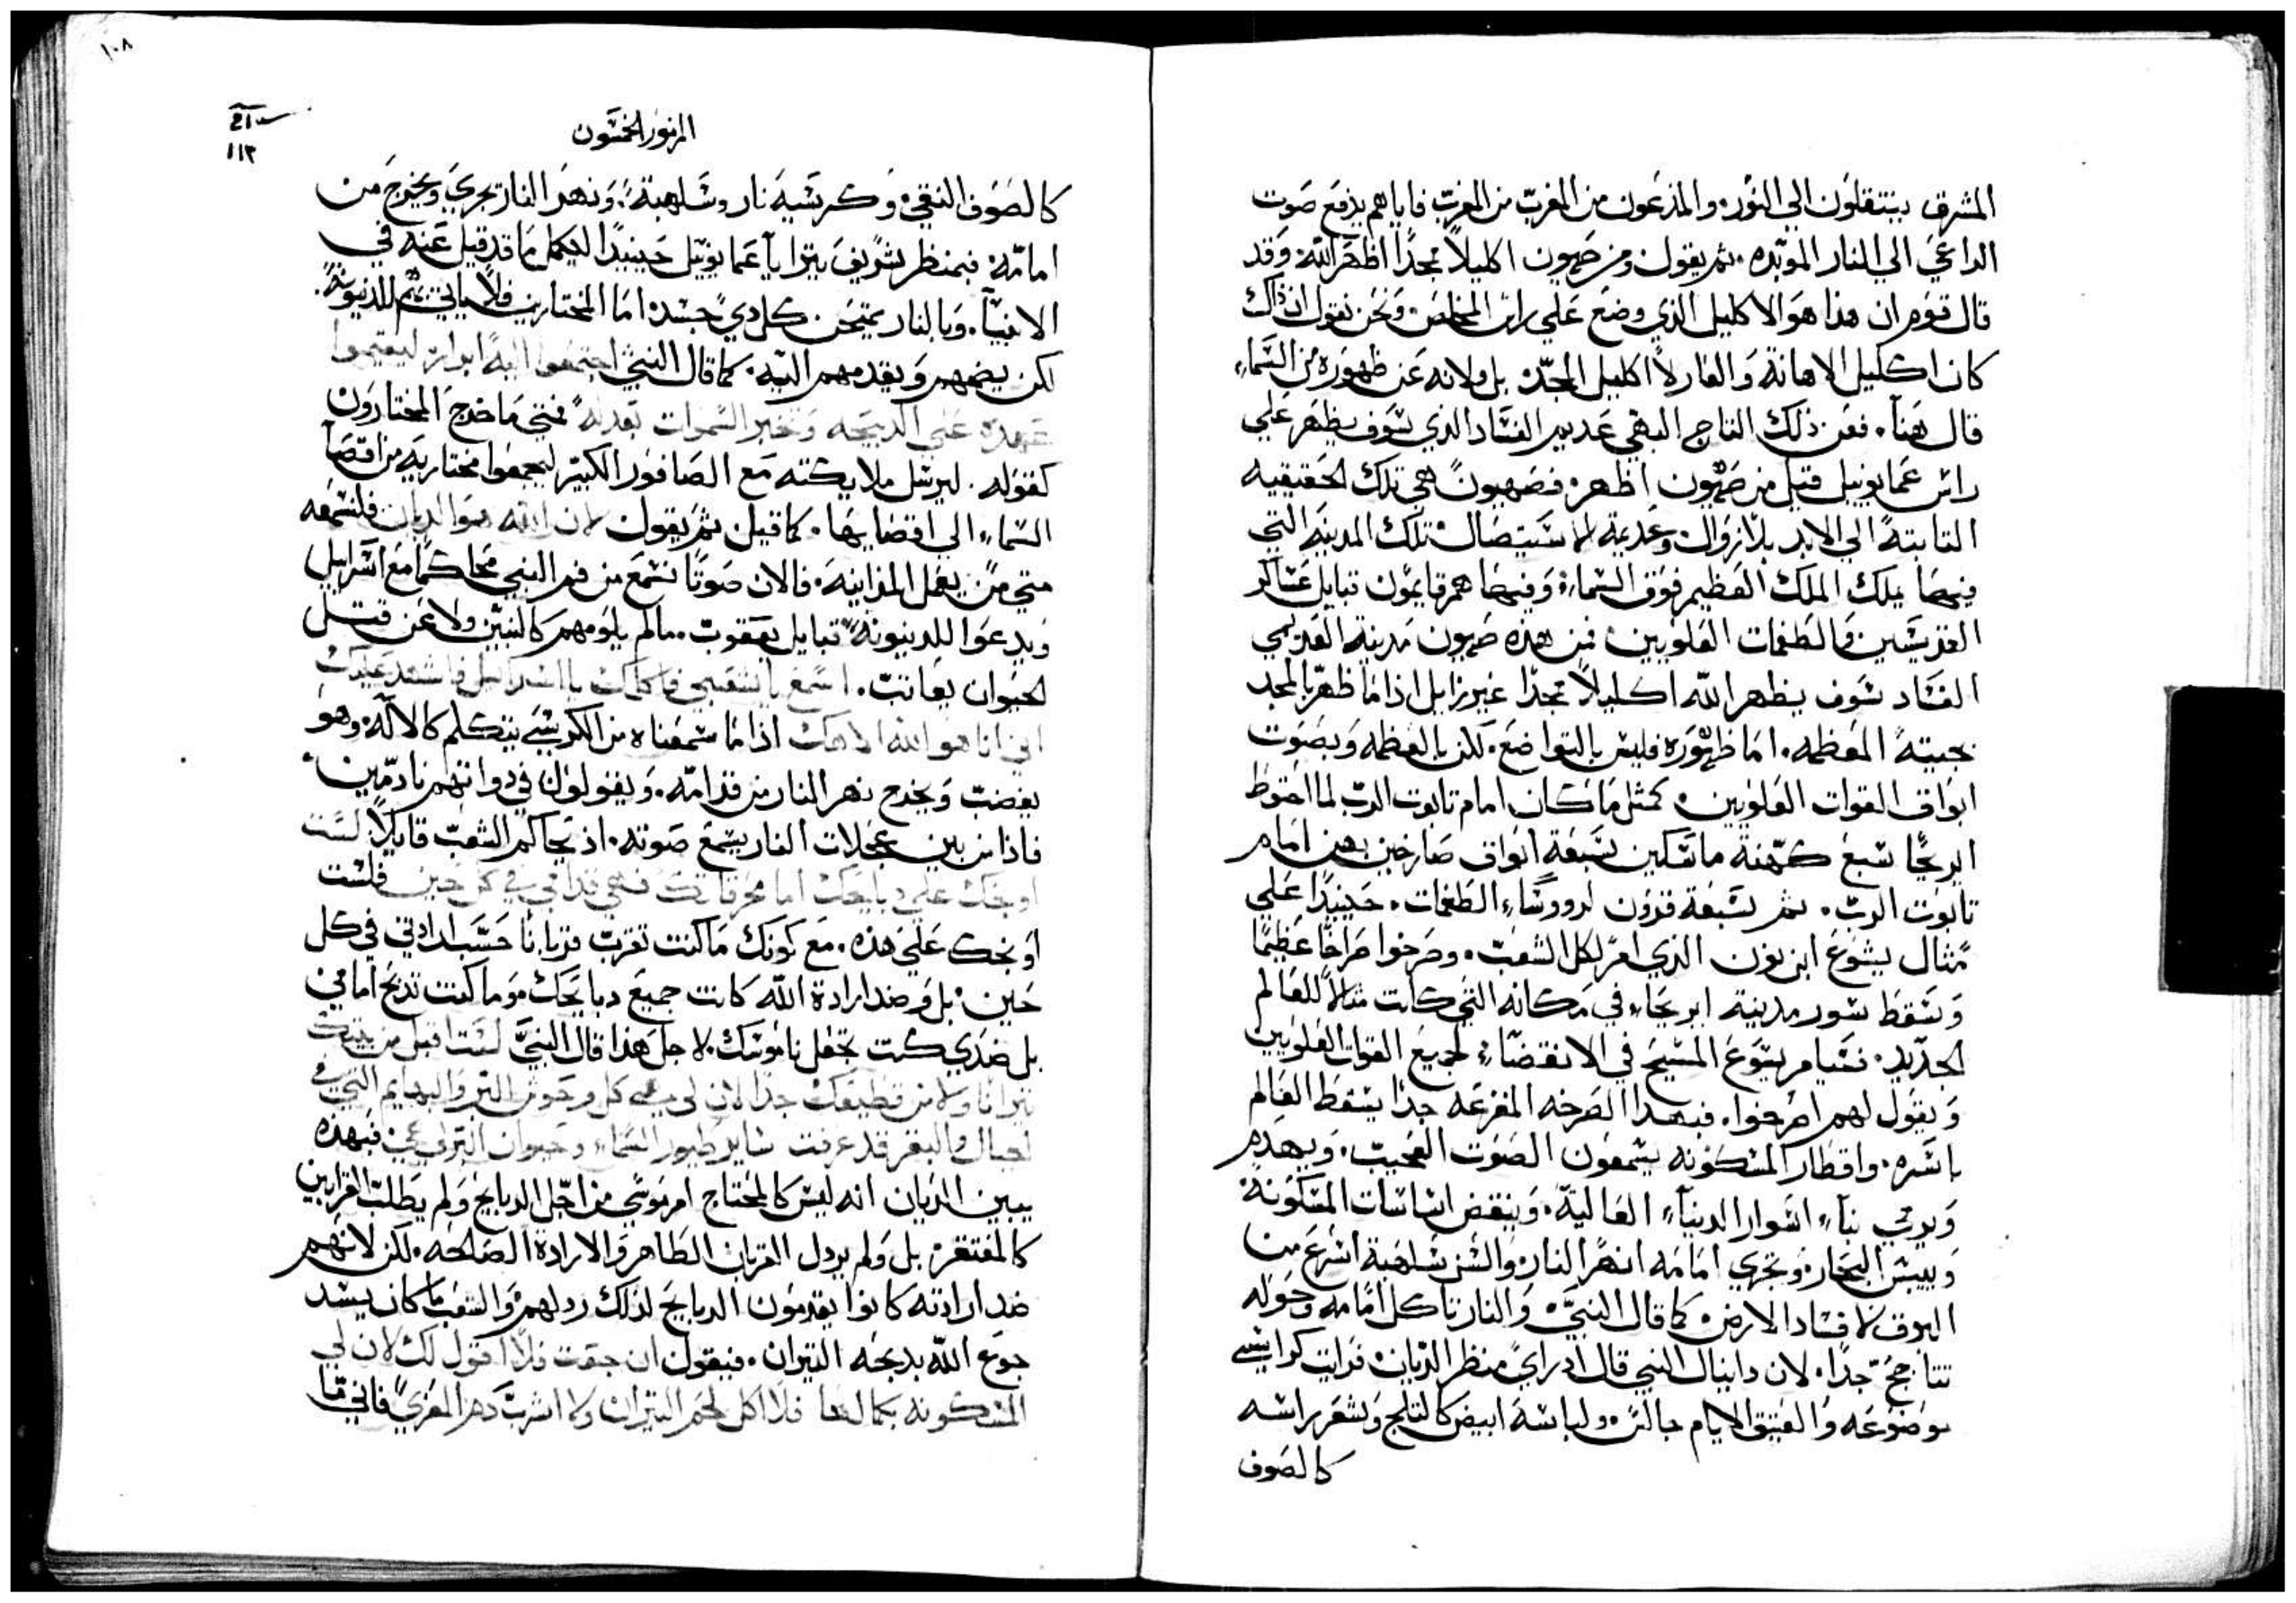 المشرق ينتقلون الي النور. والمدعون من المغرب من المغرب فاياهم يدفع صوت
الداعي الي النار الموبده. ثم يقول ومن صهيون اكليلاً مجداً اظهر الله. وقد
قال قوم ان هذا هو الاكليل الذي وضع علي راس المخلص. ونحن نقول ان ذاك
كان اكليل الاهانة والعار لا اكليل المجد. بل ولانه عن ظهوره من السماء
قال هنا. فعن ذلك التاج البهي عديم الفساد الذي سوف يظهر علي
راس عمانوييل قيل من صهيون اظهر. فصهيون هي تلك الحقيقيه
الثابتة الي الابد بلا زوال وعديمة الاستيصال. تلك المدينة التي
فيها يملك الملك العظيم فوق السماء. وفيها هم قايمون قبايل عساكر
القديسين والطغمات العلويين. فمن هذه صهيون مدينة القديمي
الفساد سوف يظهر الله اكليلاً مجداً غير زايل اذا ما ظهر بالمجد
بجيته المعظمه. اما ظهوره فليس بالتواضع. لكن بالعظمه وبصوت
ابواق القوات العلويين. كمثل ما كان امام تابوت الرب لما احتوط
ايريحا سبع كهنة ماسكين بسبعة ابواق صارخين بهن امام
تابوت الرب. ثم بسبعة قرون لرووساء الطغمات. حينيداً علي
مثال يشوع ابن نون الذي امر لكل الشعب. وصرخوا صراخاً عظيماً
وسقط سور مدينة ايريحاء في مكانه التي كانت مثالاً للعالم
الجديد. فسيامر يسوع المسيح في الانقضاء. لجميع القوات العلويين
ويقول لهم اصرخوا. فبهدا الصرخه المفزعه جداً يسقط العالم
باسره. واقطار المسكونه يسمعون الصوت العجيب. ويهدم
ويرمي بناء اسوار الدنياء العالية. وينقض اساسات المسكونة
وييبس البحار. وتجري امامه انهر النار والسن شلهبة اسرع من
البرق لافساد الارض. كما قال النبي. والنار تاكل امامه وحوله
تتاجج جداً. لان دانيال النبي قال اد راي منظر الديان. فرايت كراسي
موضوعه والعتيق الايام جالس. ولباسه ابيض كالثلج وشعر راسه
كالصوف
١٠٨
١١٣
المزمور الخمسون
كالصوف النقي. وكرسيه نار وشلهبة. ونهر النار تجري ويخرج من
امامه. فبمنظر شريف يترايا عمانوييل حينيداً ليكمل ما قد قيل عنه في
الانبيا. وبالنار يمتحن كل دي جسد. اما المختارين فلا ياتي بهم للدينونة.
لكن يضمهم ويقدمهم اليه. كما قال النبي اجتمعوا اليه ابراره ليقيموا
عهده علي الدبيحه وتخبر السموات بعدله فمتي ما خرج المختارون
كقوله. ليرسل ملايكته مع الصافور الكبير ليجمعوا مختاريه من اقصا
السماء الي اقصايها. كما قيل ثم يقول لان الله هو الديان فلنسمعه
متي من يفعل المداينه. فالان صوتاً نسمع من فم النبي محاكماً مع اسراييل
ويدعوا للدينونة قبايل يعقوب. مالم يلومهم كالنبيين ولا عن قتل
الحيوان يعاتب. اسمع يا شعبي فاكلمك يا اسراييل فاشهد عليك
اني انا هو الله الاهك اذا ما سمعناه من الكرسي يتكلم كالاله. وهو
بغضب ويخرج نهر النار من قدامه. ويقولون في دواتهم نادمين
فاذا من بين عجلات النار يسمع صوته. اد يحاكم الشعب قايلاً لست
اوبخك علي دبايحك اما محرقاتك فهي قدامي في كل حين فلست
اوبخك علي هذه. مع كونك ما كنت تقرب قرباناً حسب ارادتي في كل
حين. بل وضد ارادة الله كانت جميع دبايحك. وما كنت تدبح امامي
بل ضدي كنت تجعل ناموسك. لاجل هذا قال النبي لست اقبل من بيتك
تيرانا ولا من قطيعك جدا لان لي هي كل وحوش البر والبهايم التي في
الجبال والبقر قد عرفت ساير طيور السماء وحيوان البر لي هي فبهذه
يبين الديان انه ليس كالمحتاج امر موسي من اجل الدبايح ولم يطلب القرابين
كالمفتقر. بل ولم يردل القربان الطاهر والارادة الصالحه. لكن لانهم
ضد ارادته كانوا يقدمون الدبايح لذلك ردلهم. والشعب ما كان يسد
جوع الله بدبحه التيران. فيقول ان جعت فلا اقول لك لان لي
المسكونه بكمالها فلا اكل لحم التيران ولا اشرب دم المعزي فاني ما